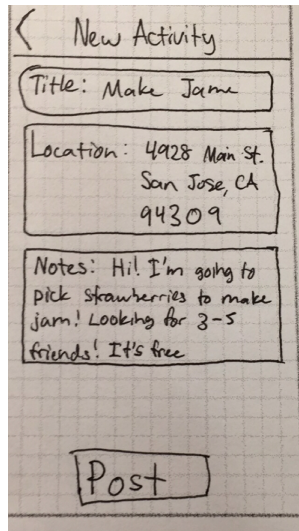 New Activity
Title: Make Jam
Location: 4928 Main St.
San Jose, CA
94309
Notes: Hi! I'm going to
pick strawberries to make
jam! Looking for 3-5
friends! It's free
Post